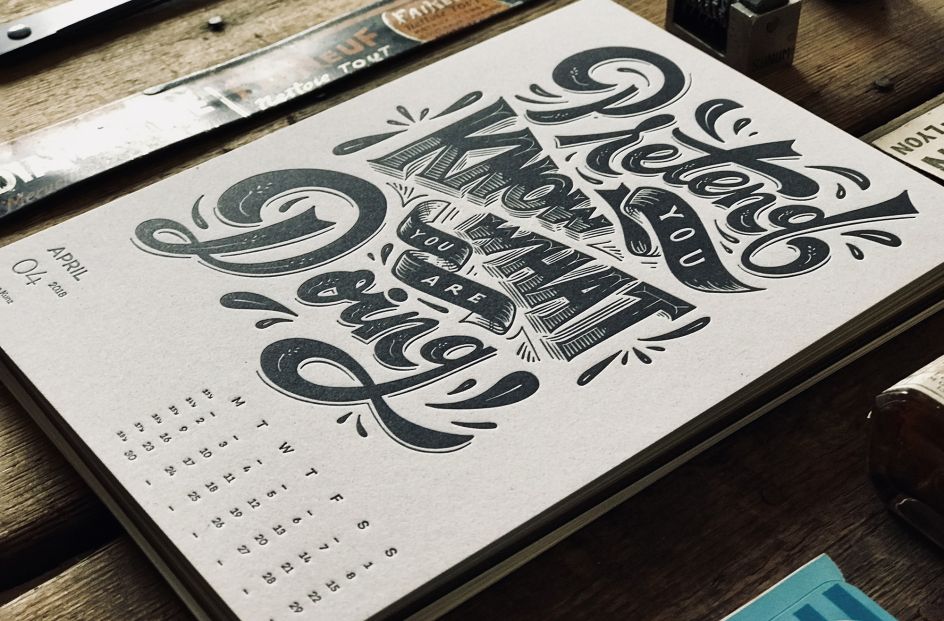 FAIRE
NEUF
Nettoie TOUT
LYON
Pretend
YOU
KNOW
WHAT
YOU
ARE
Doing
APRIL
04
2018
M T W T F S S
1
2 3 4 5 6 7 8
9 10 11 12 13 14 15
16 17 18 19 20 21 22
23 24 25 26 27 28 29
30